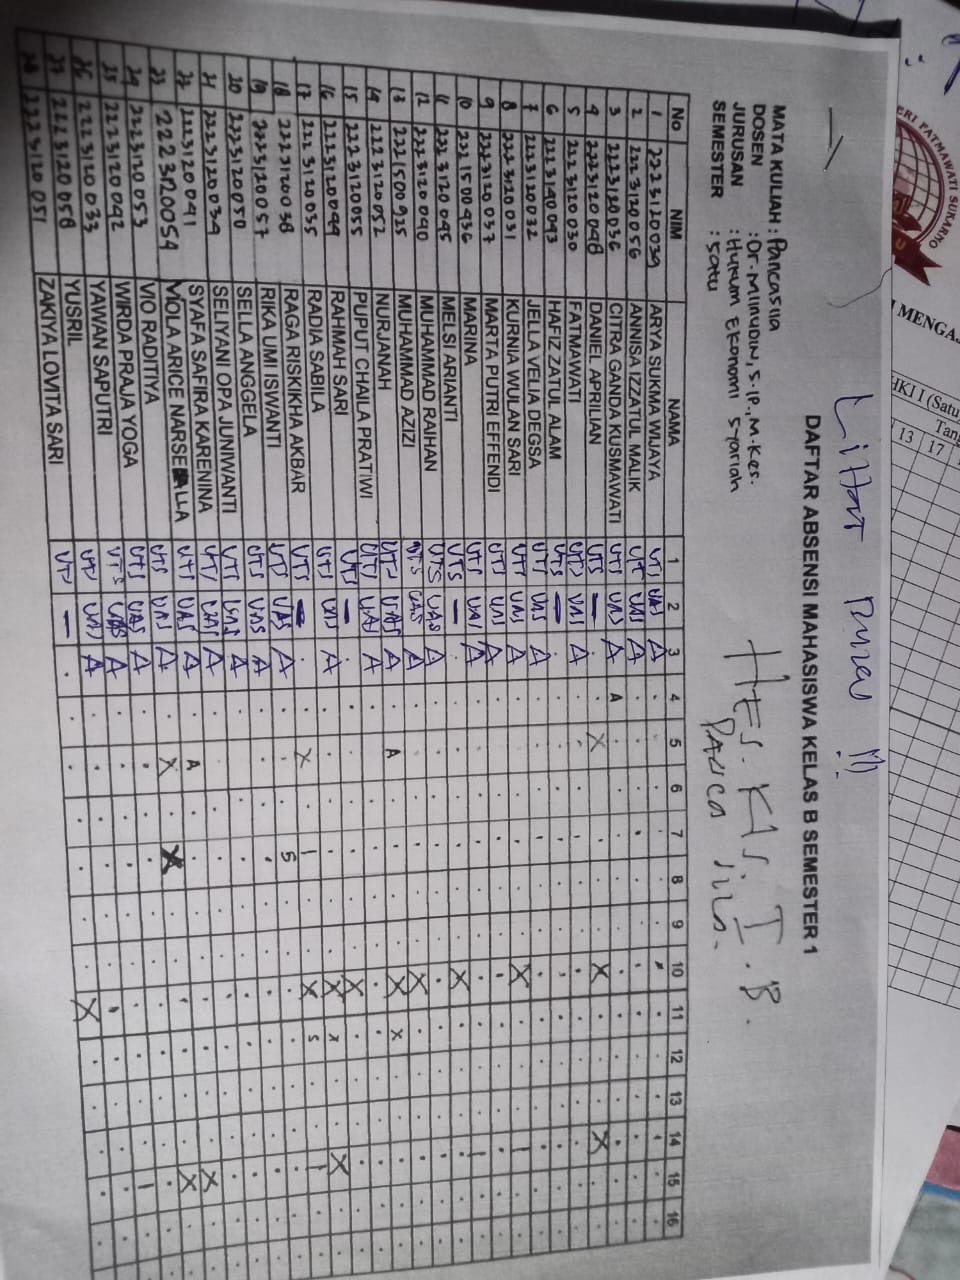 Lihat Dunia !!!
DAFTAR ABSENSI MAHASISWA KELAS B SEMESTER 1
MATA KULIAH : Pancasila
DOSEN : Dr. Mimudin, S.IP., M.Kes.
JURUSAN : Hukum Ekonomi Syariah
SEMESTER : Satu
HES. KLS. I. B.
No NIM NAMA 1 2 3 4 5 6 7 8 9 10 11 12 13 14 15 16
1 2223120039 ARYA SUKMA WIJAYA UTS UAS A
2 2223120056 ANNISA IZZATUL MALIK UTS UAS A
3 2223120036 CITRA GANDA KUSMAWATI UTS UAS A A
4 2223120048 DANIEL APRILIAN UTS — X X X
5 2223120030 FATMAWATI UTS UAS A
6 2223140043 HAFIZ ZATUL ALAM UTS —
7 2223120032 JELLA VELIA DEGSA UTS UAS A
8 2223120031 KURNIA WULAN SARI UTS UAS A X I
9 2223120037 MARTA PUTRI EFFENDI UTS UAS A
10 2221500936 MARINA UTS UAS A I
11 2223120045 MELSI ARIANTI UTS — X
12 2223120040 MUHAMMAD RAIHAN UTS UAS A
13 2221500925 MUHAMMAD AZIZI UTS UAS A X
14 2223120052 NURJANAH UTS UAS A A X X
15 2223120055 PUPUT CHAILA PRATIWI UTS UAS A
16 2223120049 RAHMAH SARI UTS — X
17 2223120035 RADIA SABILA UTS UAS A X X X
18 2223120038 RAGA RISKIKHA AKBAR UTS — X I X S I
19 2223120057 RIKA UMI ISWANTI UTS UAS A S
20 2223120050 SELLA ANGGELA UTS UAS A
21 2223120034 SELIYANI OPA JUNIWANTI UTS UAS A
22 2223120041 SYAFA SAFIRA KARENINA UTS UAS A X
23 2223120054 VIOLA ARICE NARSELLA UTS UAS A A X
24 2223120053 VIO RADITIYA UTS UAS A X X
25 2223120042 WIRDA PRAJA YOGA UTS UAS A I
26 2223120033 YAWAN SAPUTRI UTS UAS A
27 2223120058 YUSRIL UTS UAS A X
28 2223120051 ZAKIYA LOVITA SARI UTS —
ERI FATMAWATI SUKARNO
MENGAJ
HKI I (Satu
Tang
13 17